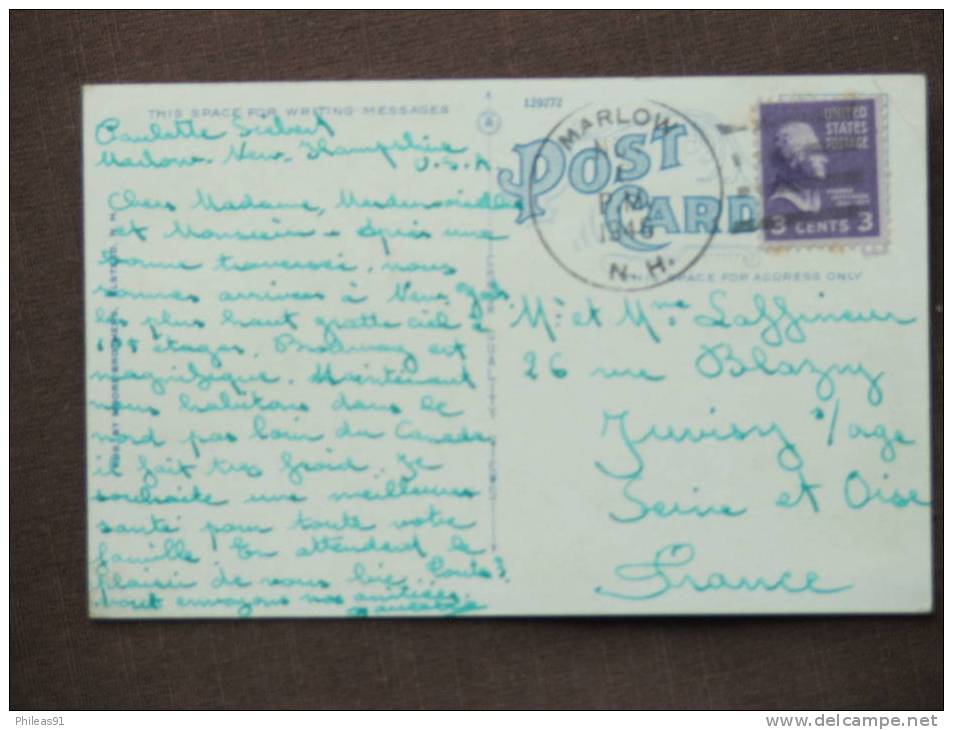 THIS SPACE FOR WRITING MESSAGES
Paulette Siebert
Marlow. New. Hampshire
U.S.A.
Chers Madame, Mesdemoiselles
et Monsieur. Après une
bonne traversée, nous
sommes arrivés à New York
les plus haut gratte ciel a
étages, Broadway est
magnifique. Maintenant
nous habitons dans le
nord pas loin du Canada,
il fait très froid. Je
souhaite une meilleures
santé pour toute votre
famille En attendent le
plaisir de vous lire.
envoyons nos amitiées.
Paulette
129272
POST CARD
MARLOW
P.M.
1946
N.H.
UNITED
STATES
POSTAGE
3 CENTS 3
SPACE FOR ADDRESS ONLY
Mr et Mme Laffineur
26 rue Blazy
Juvisy s/orge
Seine et Oise
France
Phileas91
www.delcampe.net